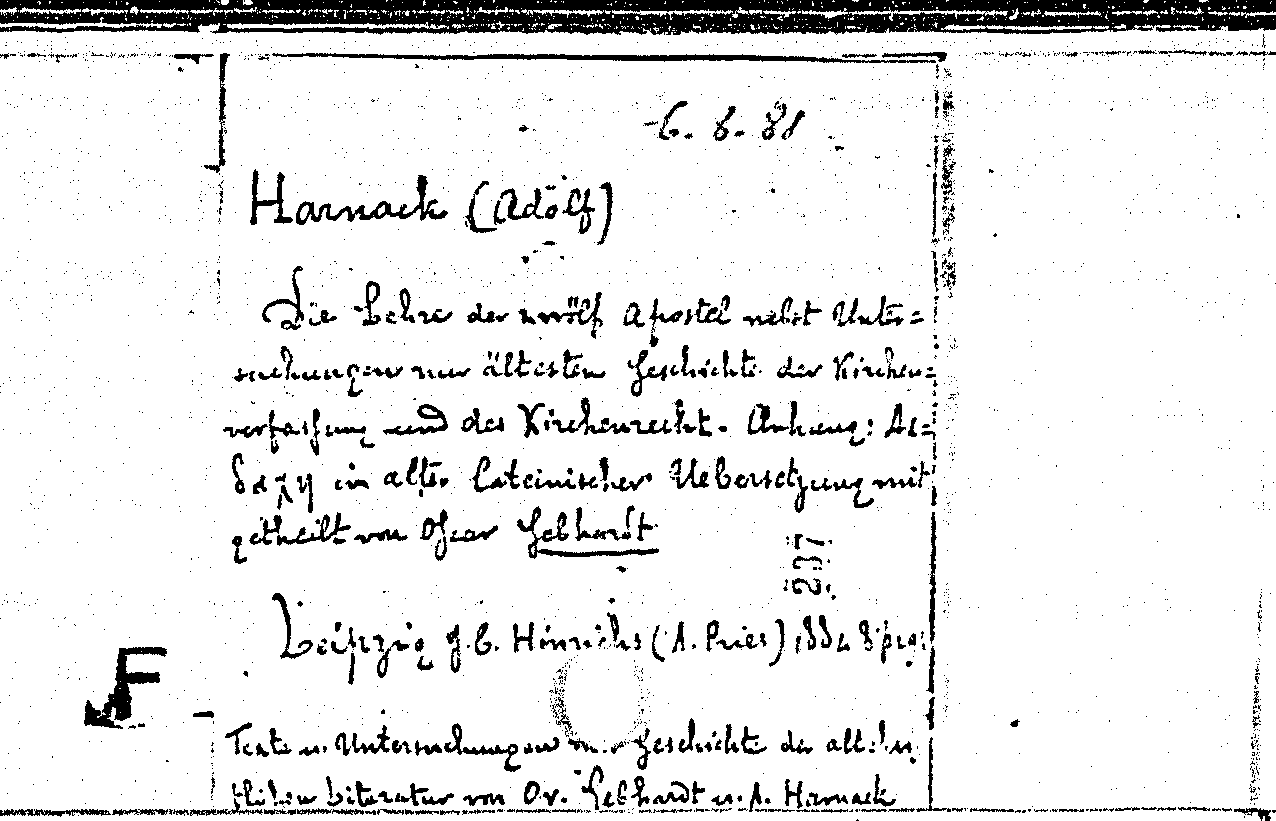 6. 8. 88
Harnack (Adolf)
Die Lehre der zwölf Apostel nebst Unter=
suchungen zur ältesten Geschichte der Kirchen=
verfassung und des Kirchenrecht. Anhang: Δι=
δαχη in alter lateinischer Uebersetzung mit
getheilt von Oscar Gebhardt
237
Leipzig J. C. Hinrichs (A. Pries) 1884 8°
F
Texte u. Untersuchungen zur Geschichte der altchris
tlichen Literatur von Os. Gebhardt u. A. Harnack